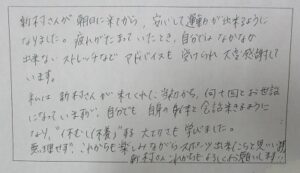 新村さんが朝日に来てから、安心して運動が出来るように
なりました。疲れがたまっていたとき、自分ではなかなか
出来ないストレッチなどアドバイスも受けられ大変感謝して
います。
私は新村さんが来てくれた当初から、何十回とお世話
になっていますが、自分でも自身の身体と会話出来るように
なり、"休む(休養)"する大切さも学びました。
無理せず、これからも楽しみながらスポーツ出来たらと思います。
新村さんこれからもよろしくお願いします